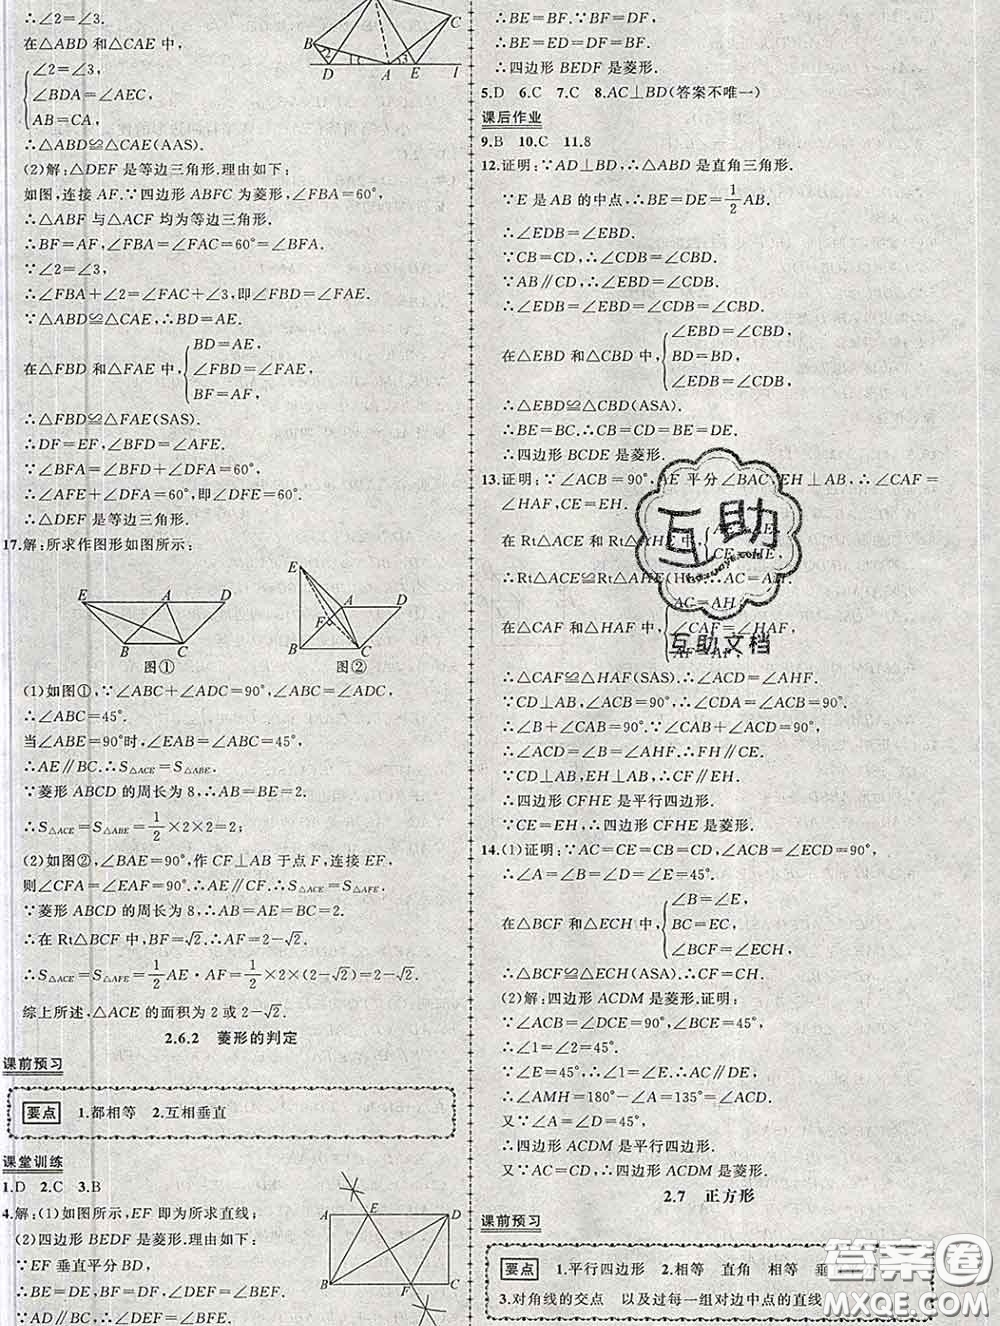 ∴∠2=∠3.
在△ABD 和△CAE 中,
∠2=∠3,
∠BDA=∠AEC,
AB=CA,
∴△ABD≌△CAE(AAS).
(2)解:△DEF 是等边三角形.理由如下:
如图,连接 AF.∵四边形 ABFC 为菱形,∠FBA=60°,
∴△ABF 与△ACF 均为等边三角形.
∴BF=AF,∠FBA=∠FAC=60°=∠BFA.
∵∠2=∠3,
∴∠FBA+∠2=∠FAC+∠3,即∠FBD=∠FAE.
∵△ABD≌△CAE,∴BD=AE.
在△FBD 和△FAE 中,
BD=AE,
∠FBD=∠FAE,
BF=AF,
∴△FBD≌△FAE(SAS).
∴DF=EF,∠BFD=∠AFE.
∵∠BFA=∠BFD+∠DFA=60°,
∴∠AFE+∠DFA=60°,即∠DFE=60°.
∴△DEF 是等边三角形.
B C
D A E l
17.解:所求作图形如图所示:
E A D
B C
图①
E
A D
F
B C
图②
(1)如图①,∵∠ABC+∠ADC=90°,∠ABC=∠ADC,
∴∠ABC=45°.
当∠ABE=90°时,∠EAB=∠ABC=45°,
∴AE∥BC.∴S△ACE=S△ABE.
∵菱形 ABCD 的周长为 8,∴AB=BE=2.
∴S△ACE=S△ABE=1/2×2×2=2;
(2)如图②,∠BAE=90°,作 CF⊥AB 于点 F,连接 EF,
则∠CFA=∠EAF=90°.∴AE∥CF.∴S△ACE=S△AFE.
∵菱形 ABCD 的周长为 8,∴AB=AE=BC=2.
∴在 Rt△BCF 中,BF=√2.∴AF=2-√2.
∴S△ACE=S△AFE=1/2AE·AF=1/2×2×(2-√2)=2-√2.
综上所述,△ACE 的面积为 2 或2-√2.
2.6.2 菱形的判定
课前预习
要点 1.都相等 2.互相垂直
课堂训练
1.D 2.C 3.B
4.解:(1)如图所示,EF 即为所求直线;
(2)四边形 BEDF 是菱形.理由如下:
∵EF 垂直平分 BD,
∴BE=DE,BF=DF,∠DEF=∠BEF.
∵AD∥BC,∴∠DEF=∠BFE.
A E D
B F C
∴BE=BF.∵BF=DF,
∴BE=ED=DF=BF.
∴四边形 BEDF 是菱形.
5.D 6.C 7.C 8.AC⊥BD(答案不唯一)
课后作业
9.B 10.C 11.8
12.证明:∵AD⊥BD,∴△ABD 是直角三角形.
∵E 是 AB 的中点,∴BE=DE=1/2AB.
∴∠EDB=∠EBD.
∵CB=CD,∴∠CDB=∠CBD.
∵AB∥CD,∴∠EBD=∠CDB.
∴∠EDB=∠EBD=∠CDB=∠CBD.
在△EBD 和△CBD 中,
∠EBD=∠CBD,
BD=BD,
∠EDB=∠CDB,
∴△EBD≌△CBD(ASA).
∴BE=BC.∴CB=CD=BE=DE.
∴四边形 BCDE 是菱形.
13.证明:∵∠ACB=90°,AE 平分∠BAC,EH⊥AB,∴∠CAF=
∠HAF,CE=EH.
在 Rt△ACE 和 Rt△AHE 中,
CE=HE,
∴Rt△ACE≌Rt△AHE(HL).∴AC=AH.
在△CAF 和△HAF 中,
AC=AH,
∠CAF=∠HAF,
AF=AF,
∴△CAF≌△HAF(SAS).∴∠ACD=∠AHF.
∵CD⊥AB,∠ACB=90°,∴∠CDA=∠ACB=90°.
∴∠B+∠CAB=90°.∵∠CAB+∠ACD=90°,
∴∠ACD=∠B=∠AHF.∴FH∥CE.
∵CD⊥AB,EH⊥AB,∴CF∥EH.
∴四边形 CFHE 是平行四边形.
∵CE=EH,∴四边形 CFHE 是菱形.
14.(1)证明:∵AC=CE=CB=CD,∠ACB=∠ECD=90°,
∴∠A=∠B=∠D=∠E=45°.
在△BCF 和△ECH 中,
∠B=∠E,
BC=EC,
∠BCF=∠ECH,
∴△BCF≌△ECH(ASA).∴CF=CH.
(2)解:四边形 ACDM 是菱形.证明:
∵∠ACB=∠DCE=90°,∠BCE=45°,
∴∠1=∠2=45°.
∵∠E=45°,∴∠1=∠E.∴AC∥DE.
∴∠AMH=180°-∠A=135°=∠ACD.
又∵∠A=∠D=45°,
∴四边形 ACDM 是平行四边形.
又∵AC=CD,∴四边形 ACDM 是菱形.
2.7 正方形
课前预习
要点 1.平行四边形 2.相等 直角 相等
3.对角线的交点 以及过每一组对边中点的直线
互助
互助文档
答案圈
MXQE.COM